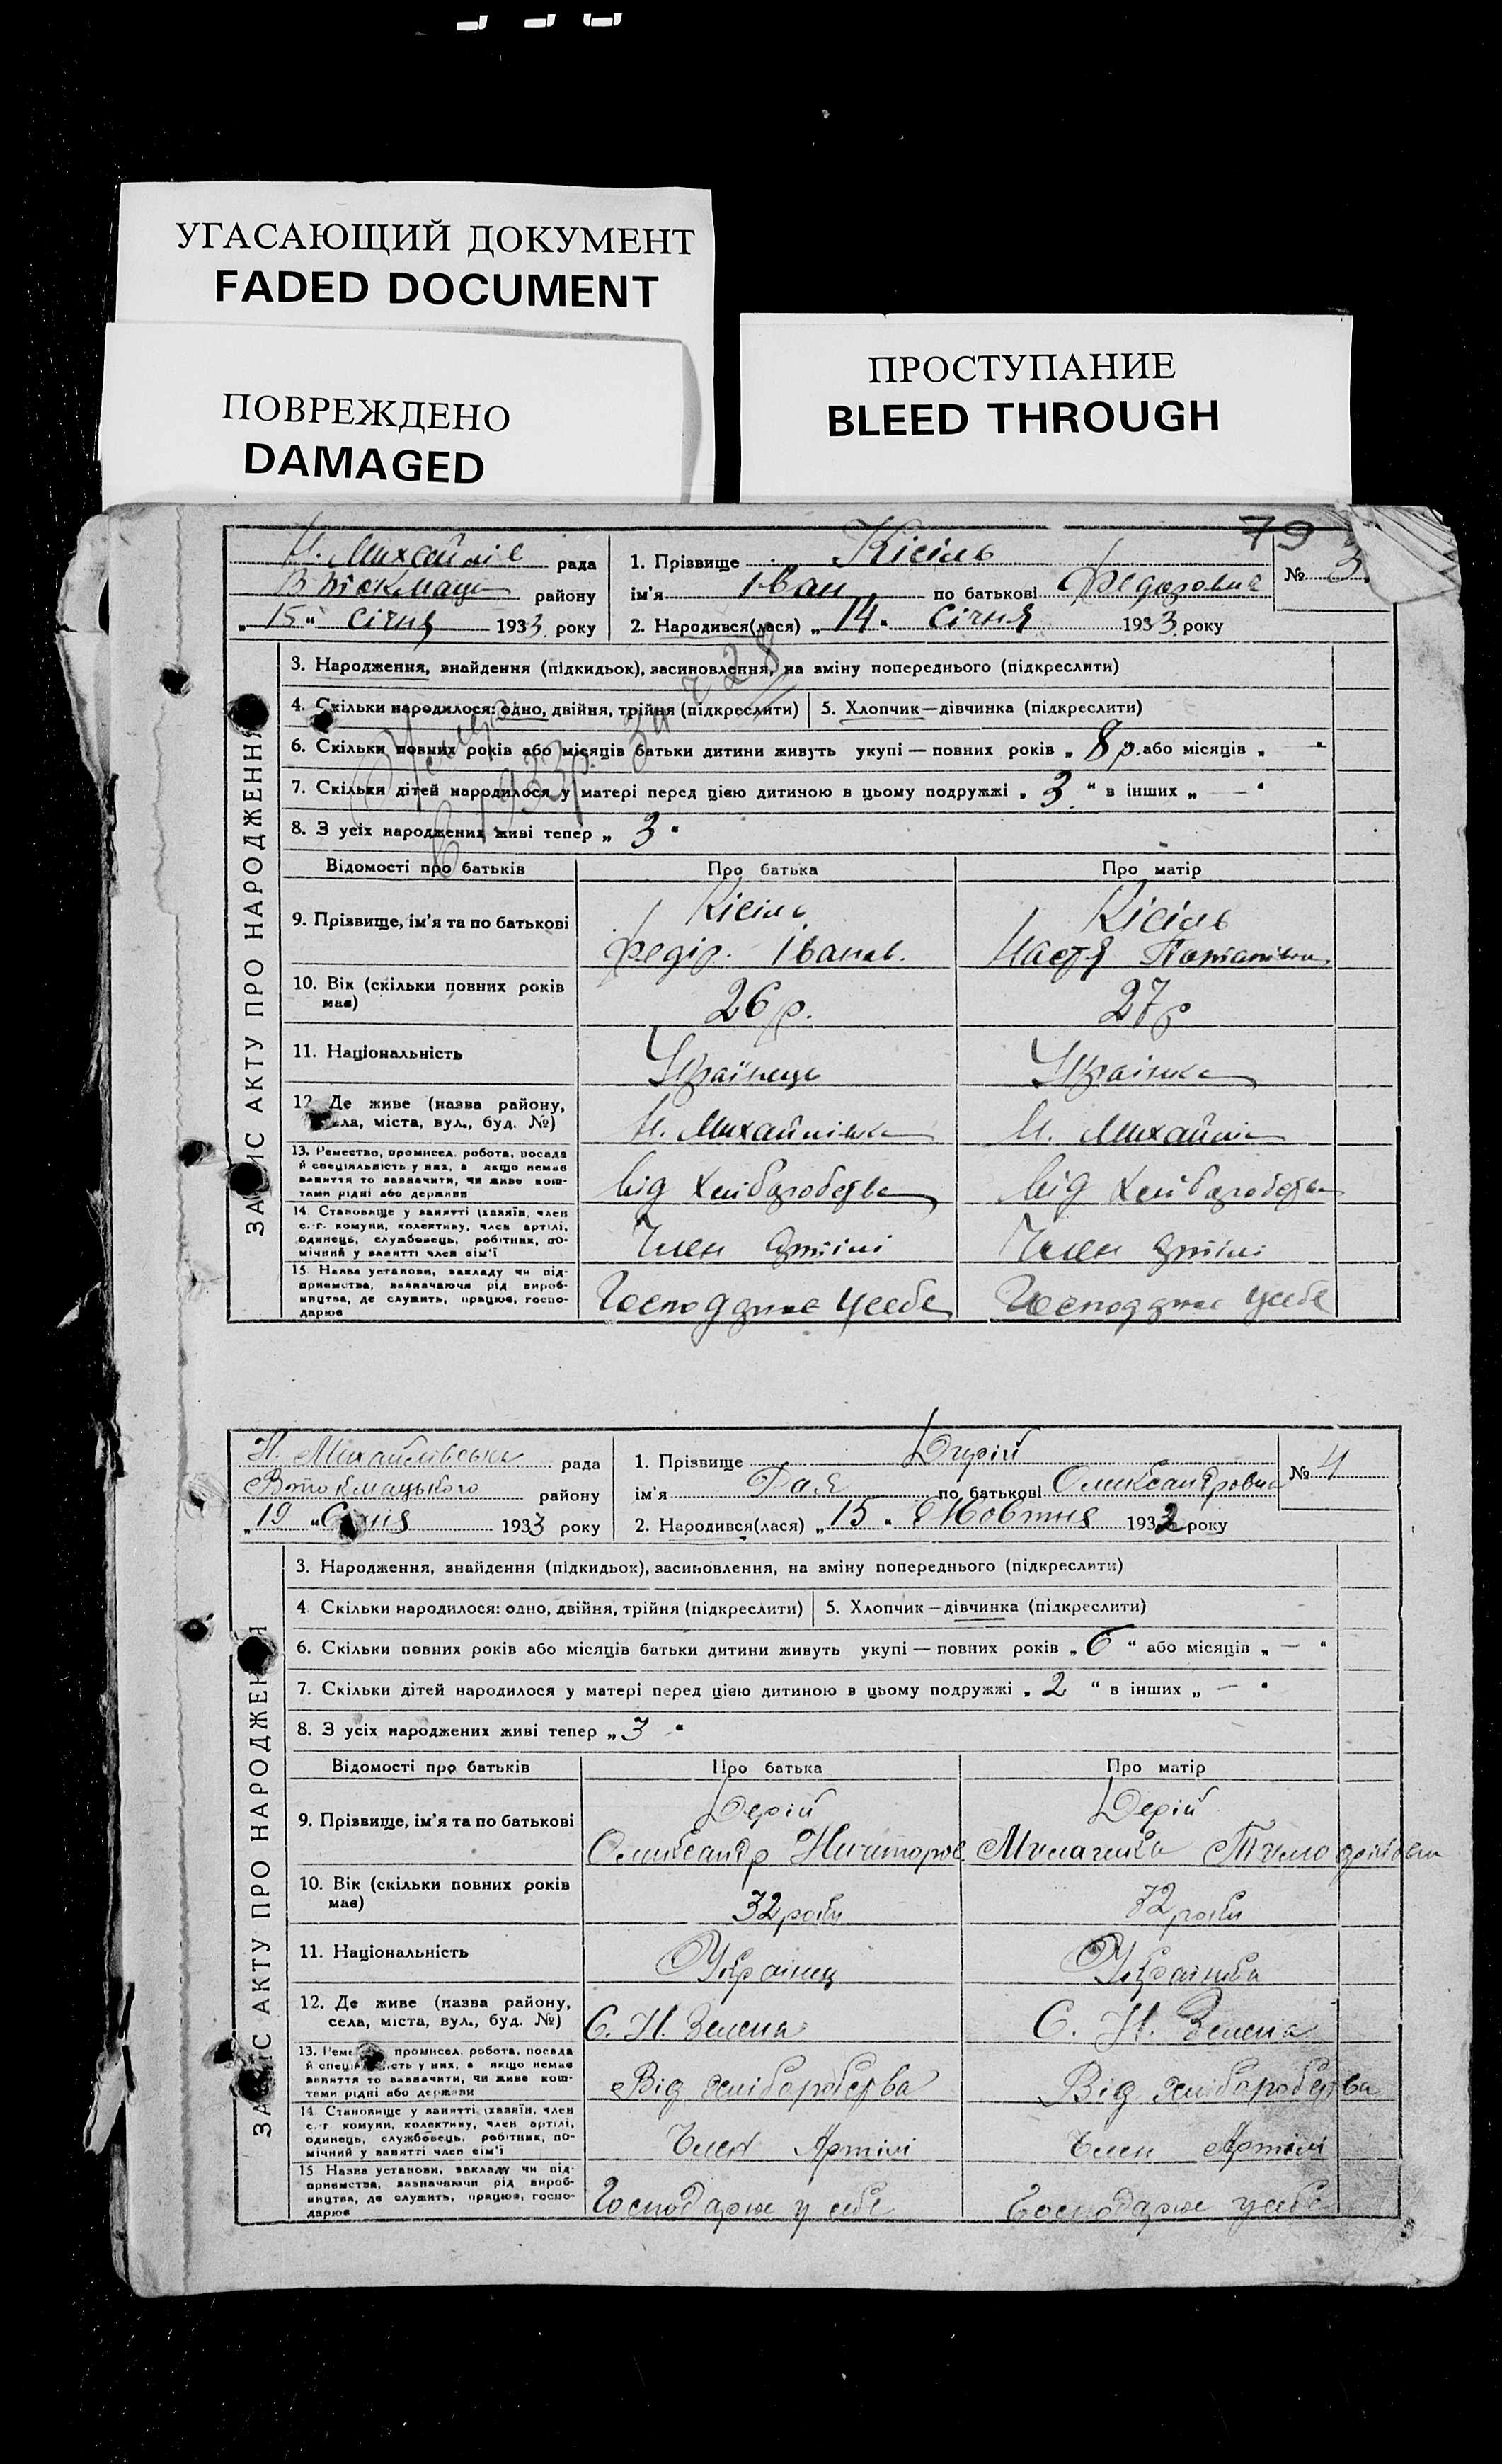 УГАСАЮЩИЙ ДОКУМЕНТ
FADED DOCUMENT
ПОВРЕЖДЕНО
DAMAGED
ПРОСТУПАНИЕ
BLEED THROUGH
79
Н. Михайлів рада
В Токмаць району
„15" січня 1933 року
1. Прізвище Кісіль
ім'я Іван по батькові Федорович
№ 3
2. Народився(лася) „14" січня 1933 року
ЗАПИС АКТУ ПРО НАРОДЖЕННЯ
3. Народження, знайдення (підкидьок), засиновлення, на зміну попереднього (підкреслити)
4. Скільки народилося: одно, двійня, трійня (підкреслити) 5. Хлопчик—дівчинка (підкреслити)
6. Скільки повних років або місяців батьки дитини живуть укупі — повних років „8 р. або місяців „ — "
7. Скільки дітей народилося у матері перед цією дитиною в цьому подружжі „3" в інших „ — "
8. З усіх народжених живі тепер „3"
Помер
в 1933 р. за ч 28
Відомості про батьків Про батька Про матір
9. Прізвище, ім'я та по батькові
Кісіль Кісіль
Федір. Іванов. Настя Потапівна
10. Вік (скільки повних років має) 26 р. 27 р
11. Національність Українець Українка
12. Де живе (назва району, села, міста, вул., буд. №) Н. Михайлівка Н. Михайлів
13. Ремество, промисел, робота, посада й спеціяльність у них, а якщо немає заняття то зазначити, чи живе коштами рідні або держави
від хліборобства від хліборобства
14. Становище у занятті (хазяїн, член с.-г. комуни, колективу, член артілі, одинець, службовець, робітник, помічний у занятті член сім'ї
Член артілі Член артілі
15. Назва установи, закладу чи підприємства, зазначаючи рід виробництва, де служить, працює, господарює
Господарює усебе Господарює усебе
Н. Михайлівська рада
Втокмацького району
„19" Січня 1933 року
1. Прізвище Дерій
ім'я по батькові Олександровна
№ 4
2. Народився(лася) „15" Жовтня 1932 року
ЗАПИС АКТУ ПРО НАРОДЖЕННЯ
3. Народження, знайдення (підкидьок), засиновлення, на зміну попереднього (підкреслити)
4. Скільки народилося: одно, двійня, трійня (підкреслити) 5. Хлопчик—дівчинка (підкреслити)
6. Скільки повних років або місяців батьки дитини живуть укупі — повних років „6" або місяців „ — "
7. Скільки дітей народилося у матері перед цією дитиною в цьому подружжі „2" в інших „ — "
8. З усіх народжених живі тепер „3"
Відомості про батьків Про батька Про матір
9. Прізвище, ім'я та по батькові
Дерій Дерій
Олександр Ничипоров
10. Вік (скільки повних років має) 32 роки 32 роки
11. Національність Українец Українка
12. Де живе (назва району, села, міста, вул., буд. №) С. Н. Зелена С. Н. Зелена
13. Ремество, промисел, робота, посада й спеціяльність у них, а якщо немає заняття то зазначити, чи живе коштами рідні або держави
Від хліборобства Від хліборобства
14. Становище у занятті (хазяїн, член с.-г. комуни, колективу, член артілі, одинець, службовець, робітник, помічний у занятті член сім'ї
Член Артілі Член Артілі
15 Назва установи, закладу чи підприємства, зазначаючи рід виробництва, де служить, працює, господарює
Господарює у себе Господарює усебе